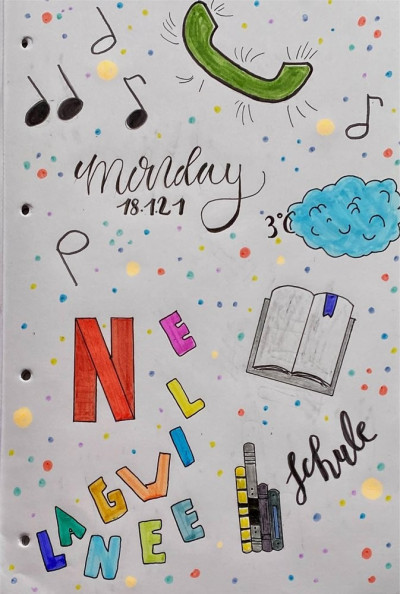 Monday
18.1.21
3°C
N
LANGEWEILE
Schule